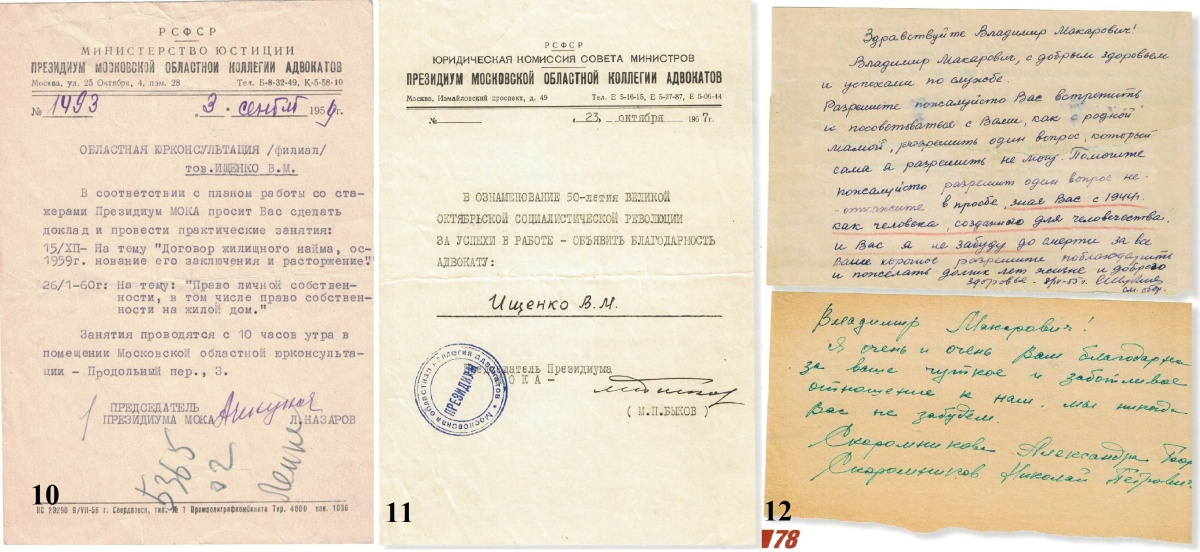 РСФСР
МИНИСТЕРСТВО ЮСТИЦИИ
ПРЕЗИДИУМ МОСКОВСКОЙ ОБЛАСТНОЙ КОЛЛЕГИИ АДВОКАТОВ
Москва, ул. 25 Октября, 4, пом. 28 Тел. Б-8-32-49, К-5-58-10
№ 1493 „3„ сентяб 1959г.
ОБЛАСТНАЯ ЮРКОНСУЛЬТАЦИЯ /филиал/
тов.ИЩЕНКО В.М.
В соответствии с планом работы со ста-
жерами Президиум МОКА просит Вас сделать
доклад и провести практические занятия:
15/XII- На тему "Договор жилищного найма, ос-
1959г. нование его заключения и расторжение".
26/1-60г: На тему: "Право личной собствен-
ности, в том числе право собствен-
ности на жилой дом."
Занятия проводятся с 10 часов утра в
помещении Московской областной юрконсульта-
ции - Продольный пер., 3.
ПРЕДСЕДАТЕЛЬ
ПРЕЗИДИУМА МОКА Л.НАЗАРОВ
5365
02
10
РСФСР
ЮРИДИЧЕСКАЯ КОМИССИЯ СОВЕТА МИНИСТРОВ
ПРЕЗИДИУМ МОСКОВСКОЙ ОБЛАСТНОЙ КОЛЛЕГИИ АДВОКАТОВ
Москва, Измайловский проспект, д. 49 Тел. Е 5-16-15, Е 5-27-87, Е 5-06-44
№ „23„ октября 1967г.
В ОЗНАМЕНОВАНИЕ 50-летия ВЕЛИКОЙ
ОКТЯБРЬСКОЙ СОЦИАЛИСТИЧЕСКОЙ РЕВОЛЮЦИИ
ЗА УСПЕХИ В РАБОТЕ - ОБЪЯВИТЬ БЛАГОДАРНОСТЬ
АДВОКАТУ:
Ищенко В.М.
Председатель Президиума
МОКА -
( М.П.БЫКОВ )
Московская областная коллегия адвокатов
ПРЕЗИДИУМ
11
Здравствуйте Владимир Макарович!
Владимир Макарович, с добрым здоровьем
и успехами по службе.
Разрешите пожалуйсто Вас встретить
и посоветываться с Вами, как с родной
мамой, разрешить один вопрос, который
сама я разрешить не могу. Помогите
пожалуйсто разрешит один вопрос не-
откажите в прозбе, зная Вас с 1944г.
как человека, созданного для человечества.
и Вас я не забуду до смерти за все
Ваше хорошое разрешите поблагодарить
и пожелать долгих лет жизне и доброго
здоровье.
Владимир Макарович!
Я очень и очень Вам благодарна
за ваше чуткое и заботливое
отношение к нам. мы никогда
Вас не забудем.
Скоромникова Александра
Скоромников Николай Петрович
12
78